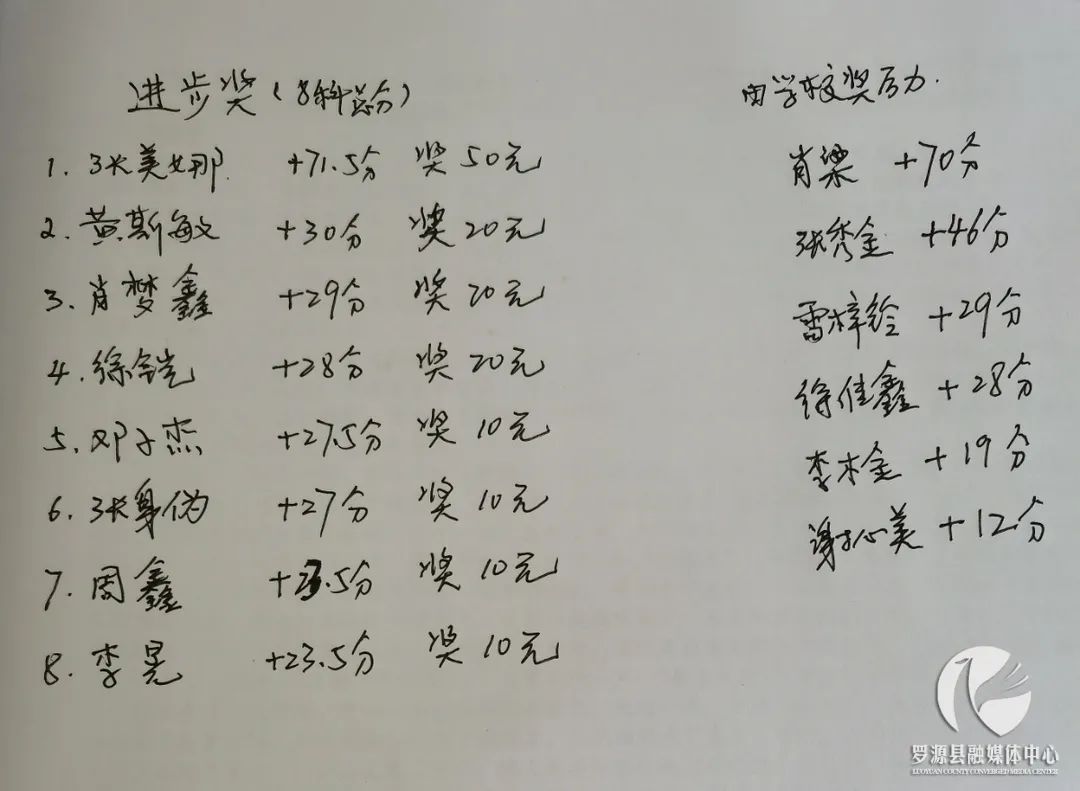 进步奖(8科总分)
1. 张美娜 +71.5分 奖50元
2. 黄斯敏 +30分 奖20元
3. 肖梦鑫 +29分 奖20元
4. 徐铠 +28分 奖20元
5. 邓子杰 +27.5分 奖10元
6. 张身伪 +27分 奖10元
7. 周鑫 +23.5分 奖10元
8. 李晃 +23.5分 奖10元
由学校奖励.
肖梁 +70分
张秀金 +46分
雷梓铃 +29分
徐佳鑫 +28分
李木金 +19分
谢心美 +12分
罗源县融媒体中心
LUOYUAN COUNTY CONVERGED MEDIA CENTER